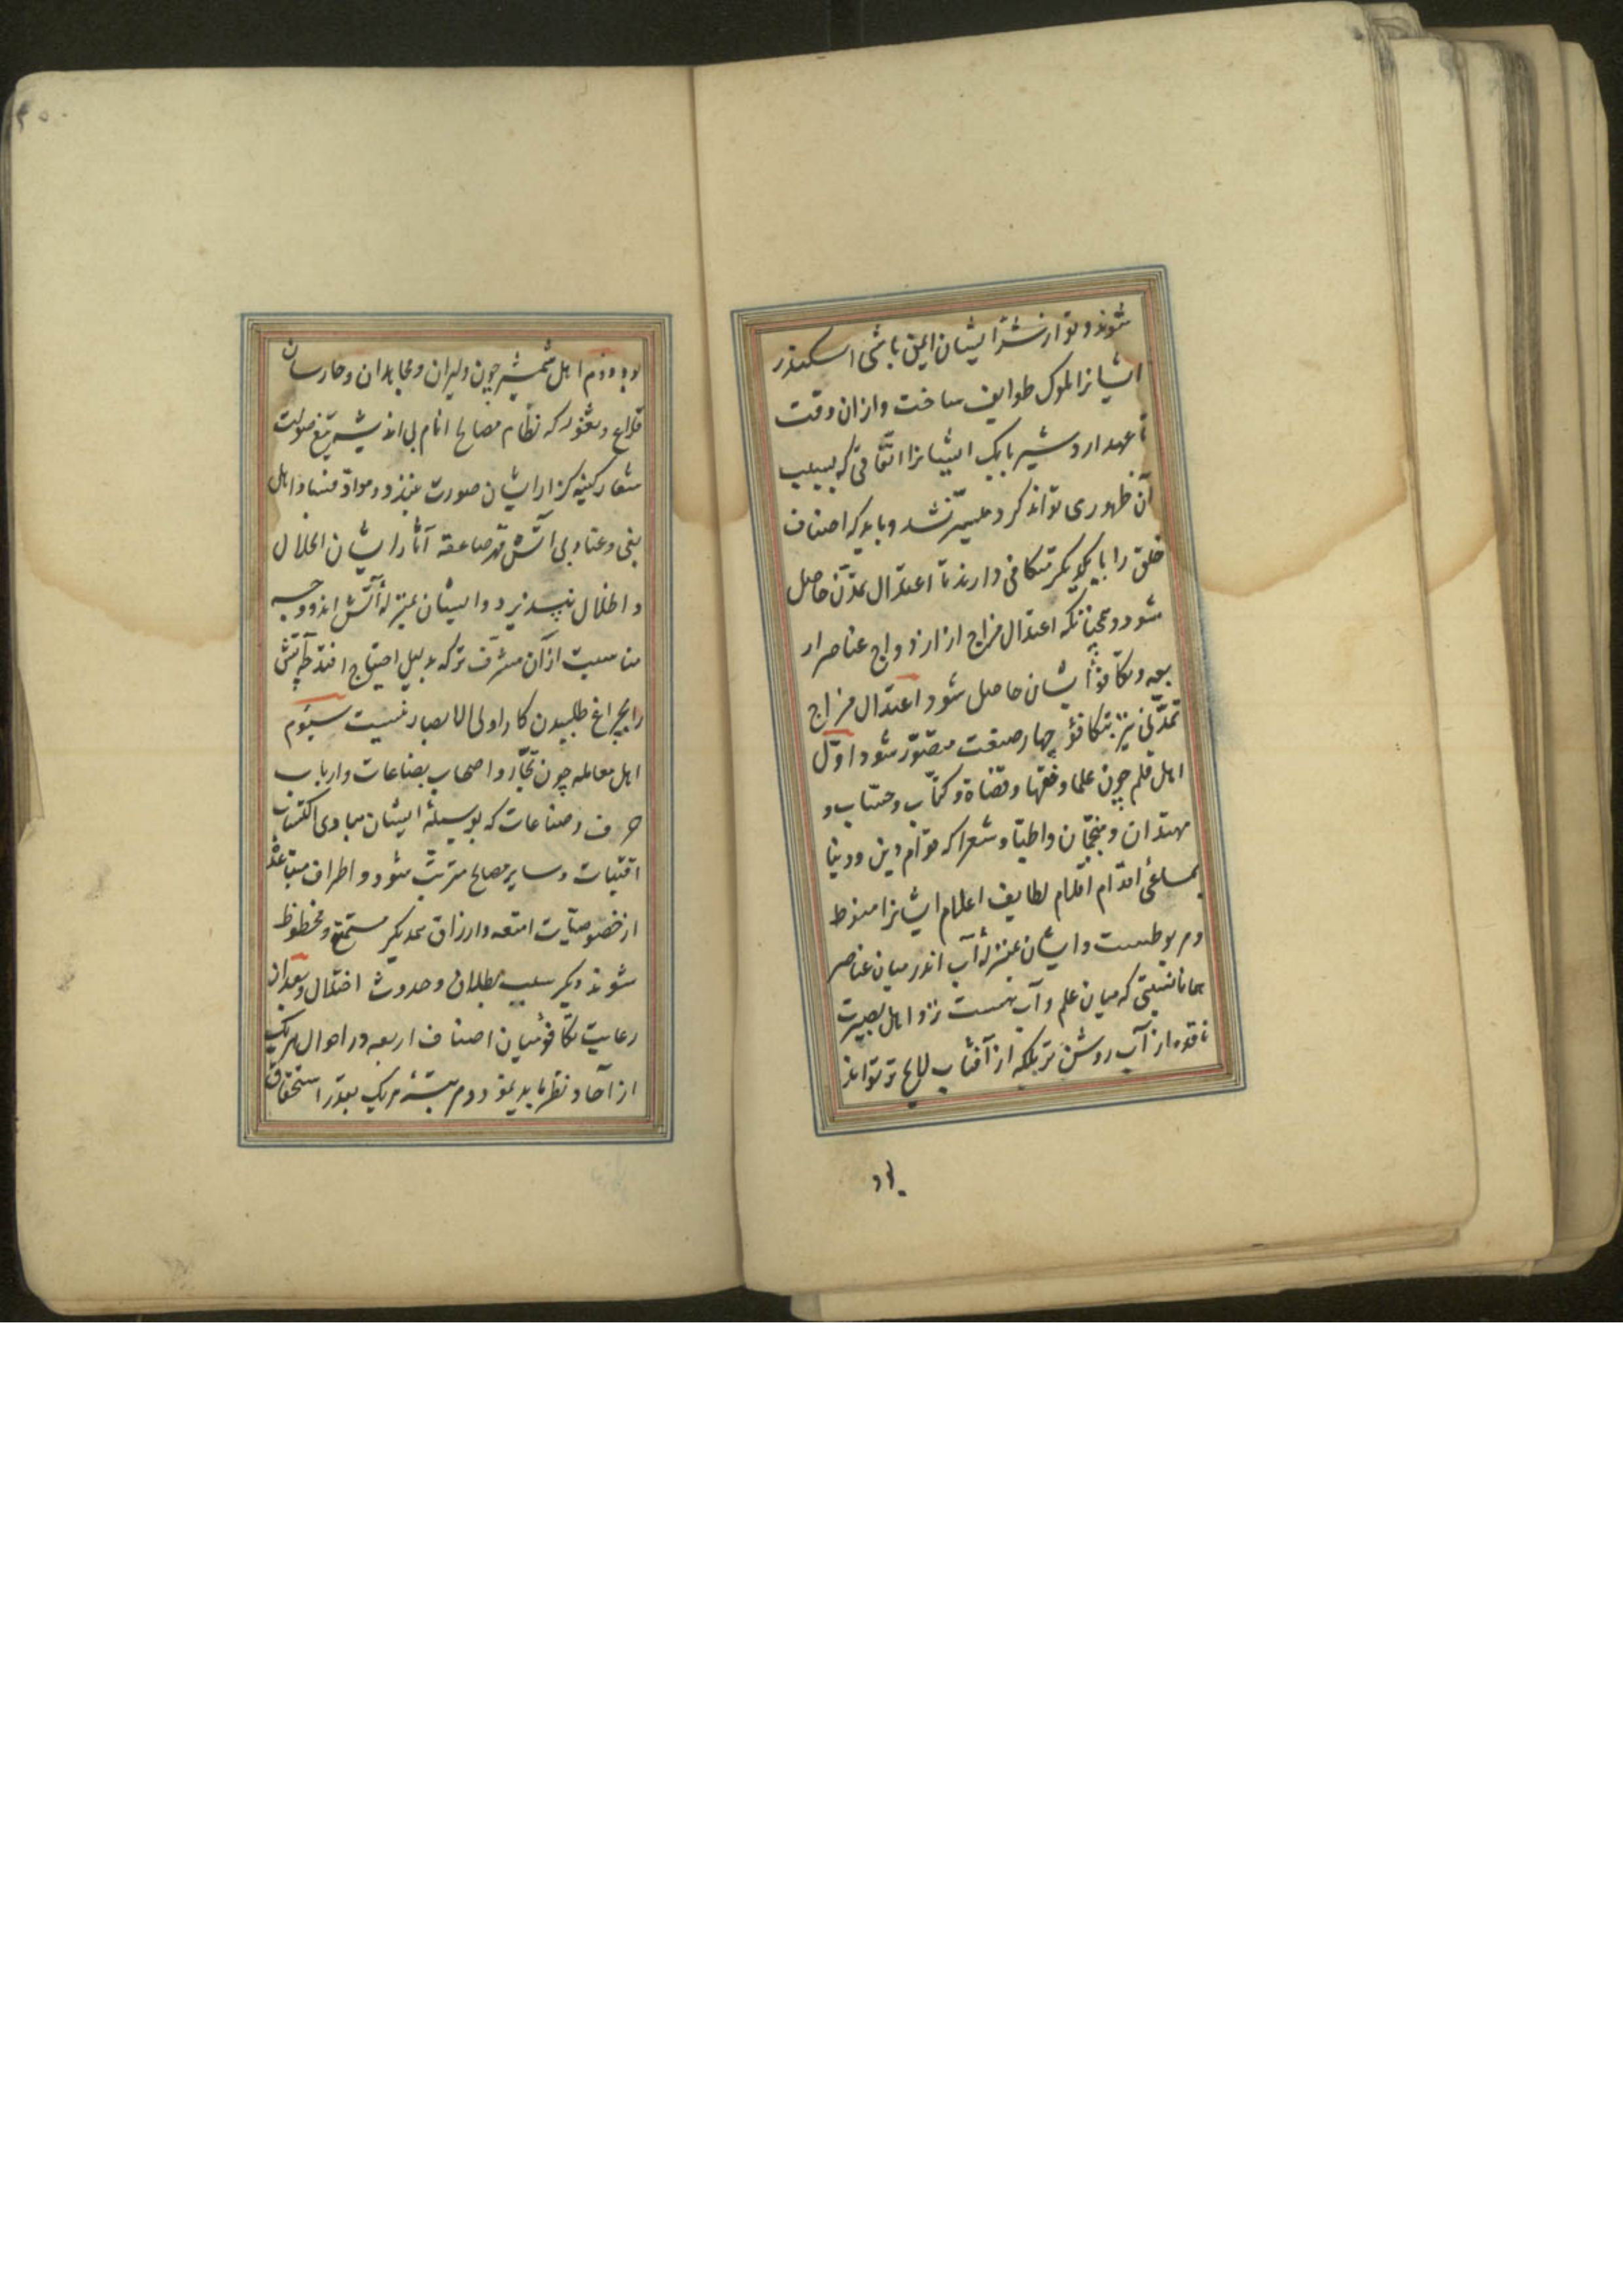 شوند و تو از شرّ ایشان ایمن باشی اسکندر
ایشانرا ملوک طوایف ساخت و ازان وقت
تا عهد اردشیر بابک ایشانرا اتفاقی که بسبب
آن ظهوری تواند کرد میسّر نشد و باید که اصناف
خلق را با یکدیگر متکافی دارند تا اعتدال تمدّن حاصل
شود و همچنانکه اعتدال مزاج از ازدواج عناصر ار
بعه و تکافؤ ایشان حاصل شود اعتدال مزاج
تمدّنی نیز بتکافؤ چهار صنف متصوّر شود اوّل
اهل قلم چون علما و فقها و قضاة و کتّاب و حسّاب و
مهندسان و منجّمان و اطبّا و شعرا که قوام دین و دنیا
بمساعی اقدام اقلام لطایف اعلام ایشانرا منوط
و مربوطست و ایشان بمنزلهٔ آب اند در میان عناصر
همانا نسبتی که میان علم و آب هست نزد اهل بصیرت
ناقده از آب روشن تر بلکه از آفتاب لایح تر تواند
بود
۲۵۰
بود دوم اهل شمشیر چون دلیران و مجاهدان و حارسان
قلاع و ثغور که نظام مصالح انام بی اندیشه تیغ صولت
شعار کینه گزار ایشان صورت نبندد و موادّ فساد اهل
بغی و عناد بی آتش قهر صاعقه آثار ایشان انحلال
و اضلال نپذیرد و ایشان بمنزلهٔ آتش اند و وجه
مناسبت ازان مشرف تر که بدلیل احتیاج افتد چه آتش
را بچراغ طلبیدن کار اولی الابصار نیست سیوم
اهل معامله چون تجّار و اصحاب بضاعات و ارباب
حرف و صناعات که بوسیلهٔ ایشان مبادی اکتساب
اقنیات و سایر مصالح مترتّب شود و اطراف متباعده
از خصوصیّات امتعه و ارزاق یکدیگر مستمتع و محظوظ
شوند دیگر سبب بطلان و حدوث اختلال و بعد ازان
رعایت تکافؤ میان اصناف اربعه در احوال هریک
از آحاد نظر باید نمود و مرتبهٔ هریک بقدر استحقاق